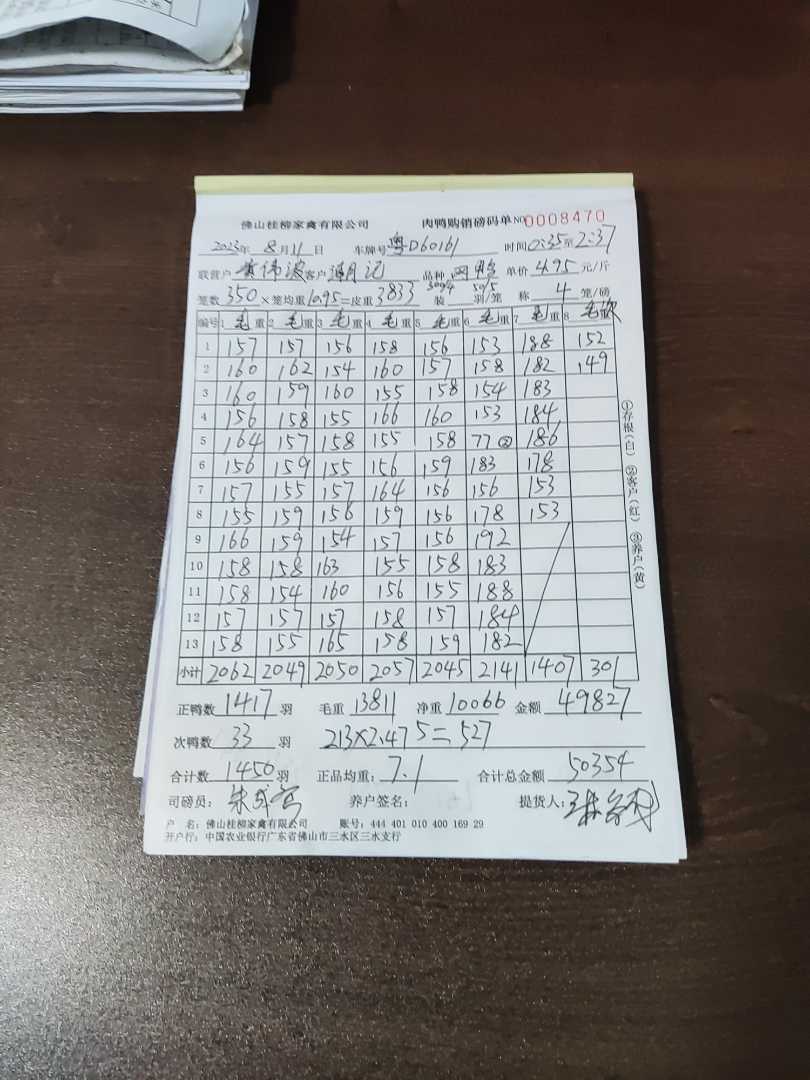 佛山桂柳家禽有限公司 肉鸭购销磅码单 NO 0008470
2023年 8月11日 车牌号 粤D60161 时间0:35至2:37
联营户 黄伟波 客户 品种 单价 4.95 元/斤
笼数 350 ×笼均重 10.95 =皮重 3833 装 300/4 50/5 羽/笼 称 4 笼/磅
编号 1 毛重 2 毛重 3 毛重 4 毛重 5 毛重 6 毛重 7 毛重 8 毛
1 157 157 156 158 156 153 188 152
2 160 162 154 160 157 158 182 149
3 160 159 160 155 158 154 183
4 156 158 155 166 160 153 184
5 164 157 158 155 158 77② 186
6 156 159 155 156 159 183 178
7 157 155 157 164 156 156 153
8 155 159 156 159 156 178 153
9 166 159 154 157 156 192
10 158 158 163 155 158 183
11 158 154 160 156 155 188
12 157 157 157 158 157 184
13 158 155 165 158 159 182
小计 2062 2049 2050 2057 2045 2141 1407 301
①存根(白) ②客户(红) ③养户(黄)
正鸭数 1417 羽 毛重 13811 净重 10066 金额 49827
次鸭数 33 羽 213×2.475=527
合计数 1450 羽 正品均重: 7.1 合计总金额 50354
司磅员: 养户签名: 提货人:
户 名: 佛山桂柳家禽有限公司 账号: 444 401 010 400 169 29
开户行: 中国农业银行广东省佛山市三水区三水支行